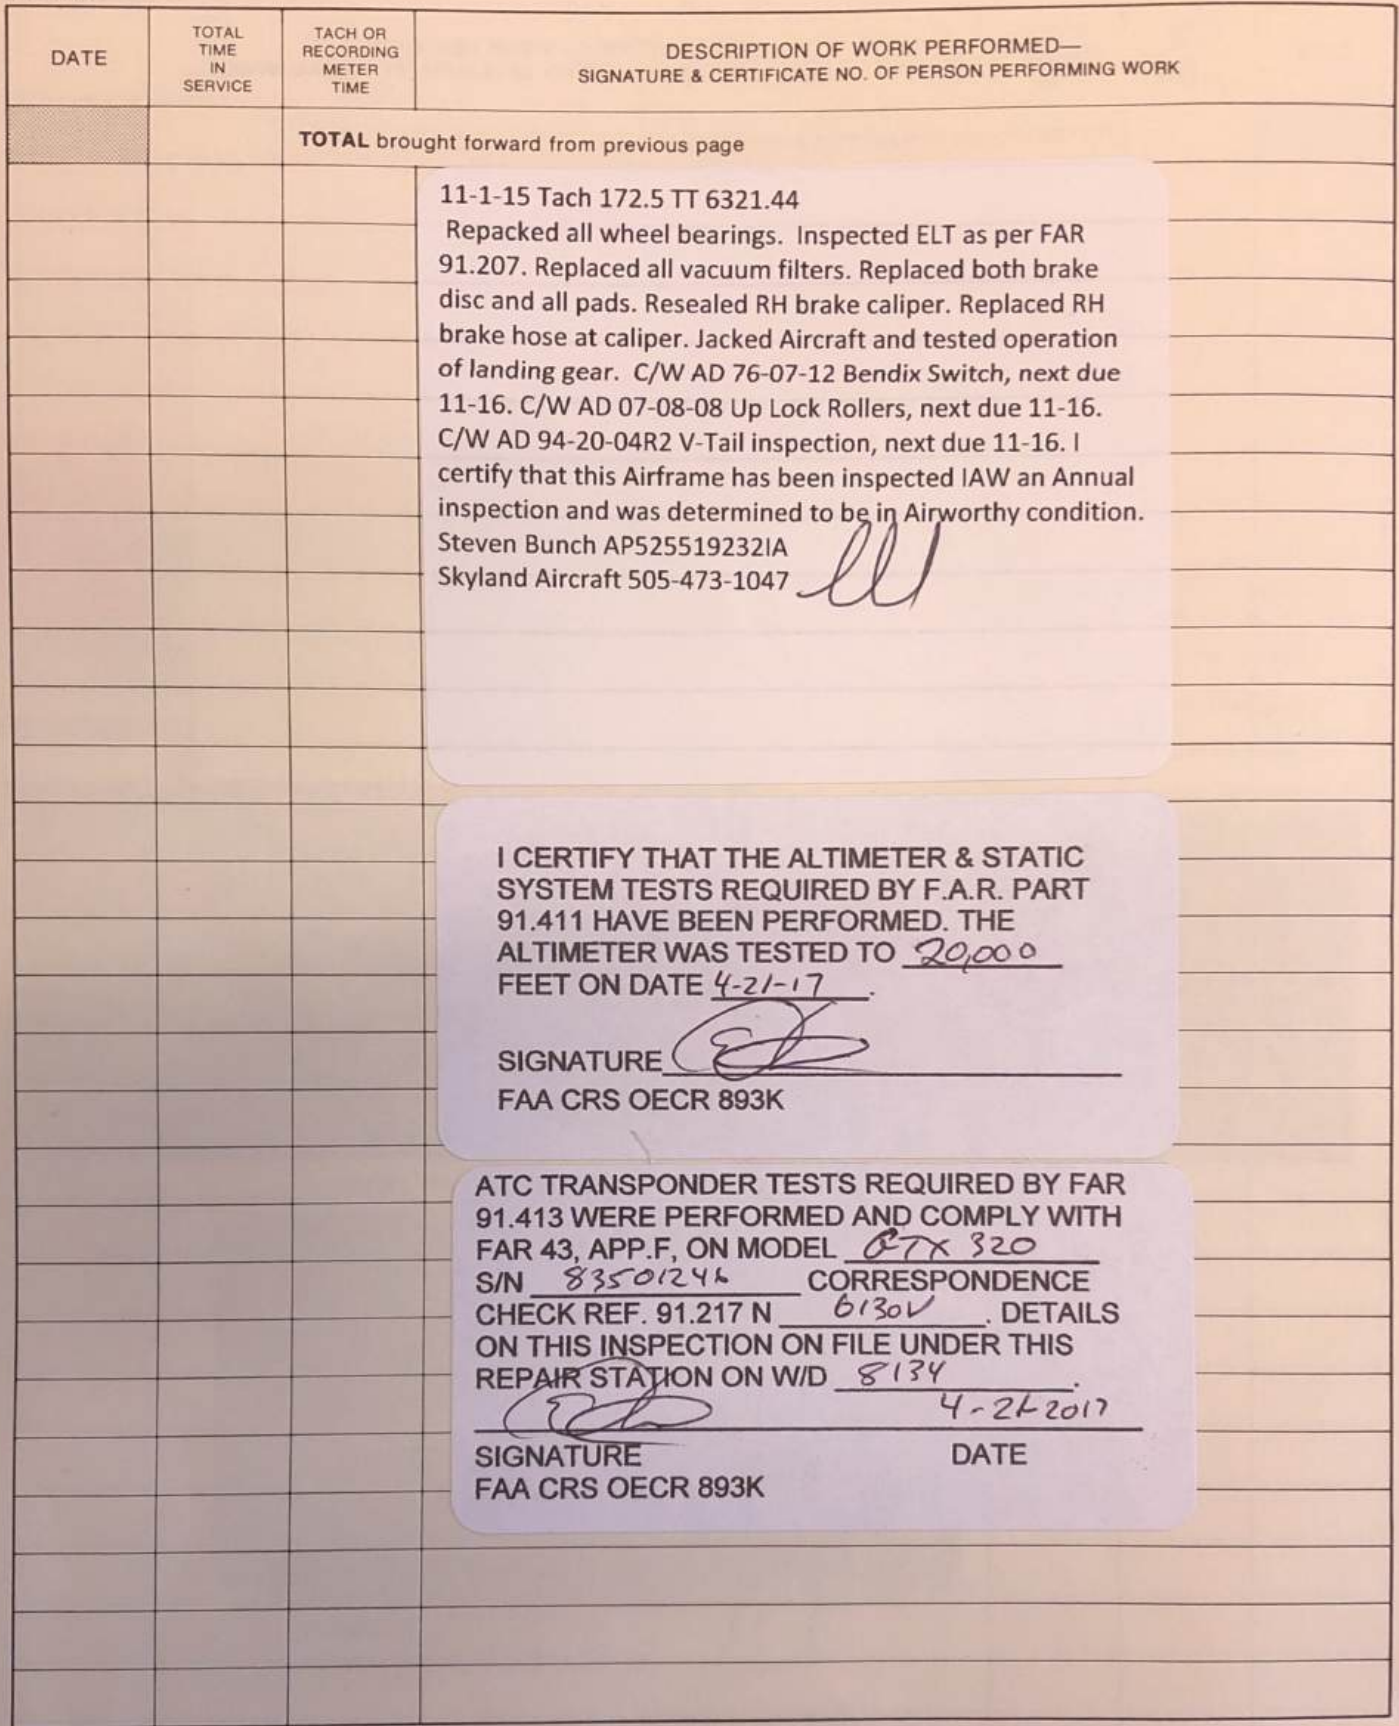 DATE
TOTAL TIME IN SERVICE
TACH OR RECORDING METER TIME
DESCRIPTION OF WORK PERFORMED—
SIGNATURE & CERTIFICATE NO. OF PERSON PERFORMING WORK
TOTAL brought forward from previous page
11-1-15 Tach 172.5 TT 6321.44
Repacked all wheel bearings. Inspected ELT as per FAR
91.207. Replaced all vacuum filters. Replaced both brake
disc and all pads. Resealed RH brake caliper. Replaced RH
brake hose at caliper. Jacked Aircraft and tested operation
of landing gear. C/W AD 76-07-12 Bendix Switch, next due
11-16. C/W AD 07-08-08 Up Lock Rollers, next due 11-16.
C/W AD 94-20-04R2 V-Tail inspection, next due 11-16. I
certify that this Airframe has been inspected IAW an Annual
inspection and was determined to be in Airworthy condition.
Steven Bunch AP525519232IA
Skyland Aircraft 505-473-1047
I CERTIFY THAT THE ALTIMETER & STATIC
SYSTEM TESTS REQUIRED BY F.A.R. PART
91.411 HAVE BEEN PERFORMED. THE
ALTIMETER WAS TESTED TO 20,000
FEET ON DATE 4-21-17.
SIGNATURE
FAA CRS OECR 893K
ATC TRANSPONDER TESTS REQUIRED BY FAR
91.413 WERE PERFORMED AND COMPLY WITH
FAR 43, APP.F, ON MODEL GTX 320
S/N 83501246 CORRESPONDENCE
CHECK REF. 91.217 N 6130V. DETAILS
ON THIS INSPECTION ON FILE UNDER THIS
REPAIR STATION ON W/D 8134.
4-21-2017
SIGNATURE DATE
FAA CRS OECR 893K